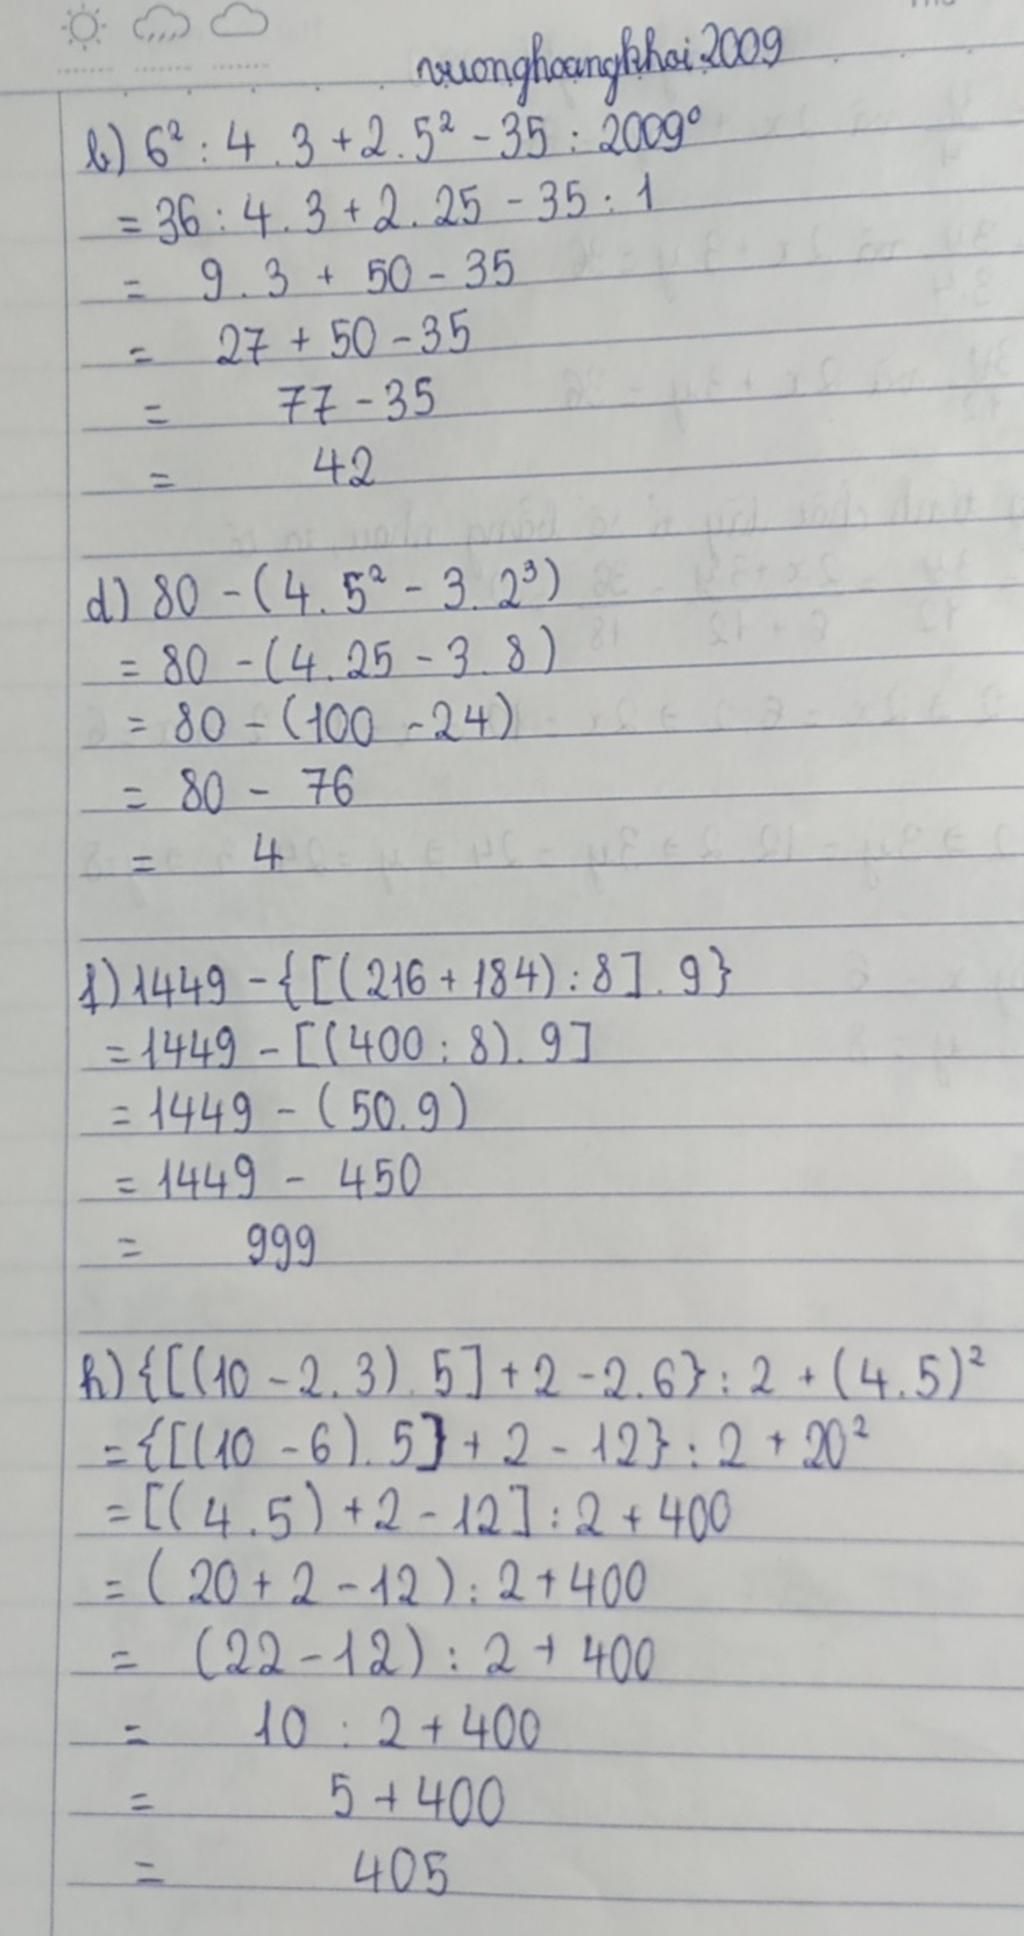 vuonghoangkhai2009
b) 6² : 4 . 3 + 2 . 5² - 35 : 2009⁰
= 36 : 4 . 3 + 2 . 25 - 35 : 1
= 9 . 3 + 50 - 35
= 27 + 50 - 35
= 77 - 35
= 42
d) 80 - (4 . 5² - 3 . 2³)
= 80 - (4 . 25 - 3 . 8)
= 80 - (100 - 24)
= 80 - 76
= 4
f) 1449 - {[(216 + 184) : 8] . 9}
= 1449 - [(400 : 8) . 9]
= 1449 - (50 . 9)
= 1449 - 450
= 999
h) {[(10 - 2 . 3) . 5] + 2 - 2 . 6} : 2 + (4 . 5)²
= {[(10 - 6) . 5] + 2 - 12} : 2 + 20²
= [(4 . 5) + 2 - 12] : 2 + 400
= (20 + 2 - 12) : 2 + 400
= (22 - 12) : 2 + 400
= 10 : 2 + 400
= 5 + 400
= 405